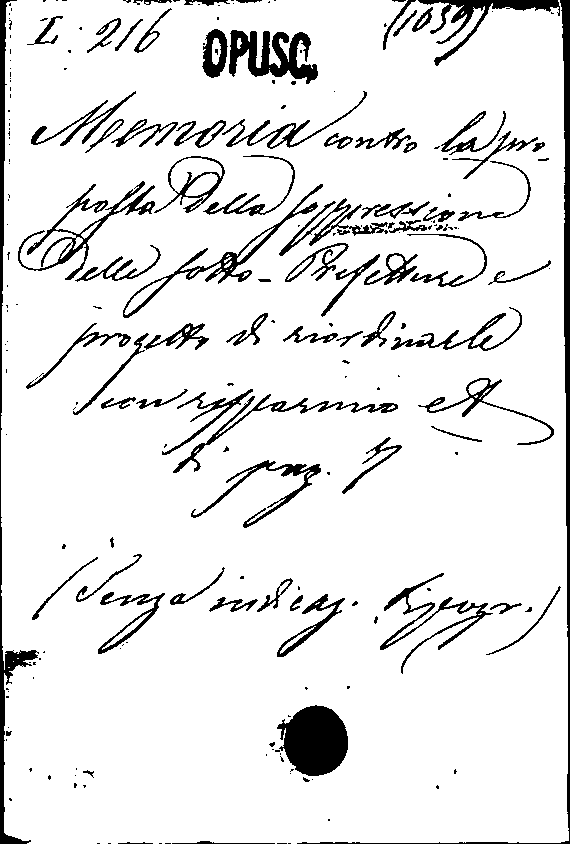 L. 216 (1039)
OPUSC.
Memoria contro la pro-
posta della soppressione
delle sotto-Prefetture e
progetto di riordinarle
con risparmio et
di pag. 7
(Senza indicaz. tipogr.)